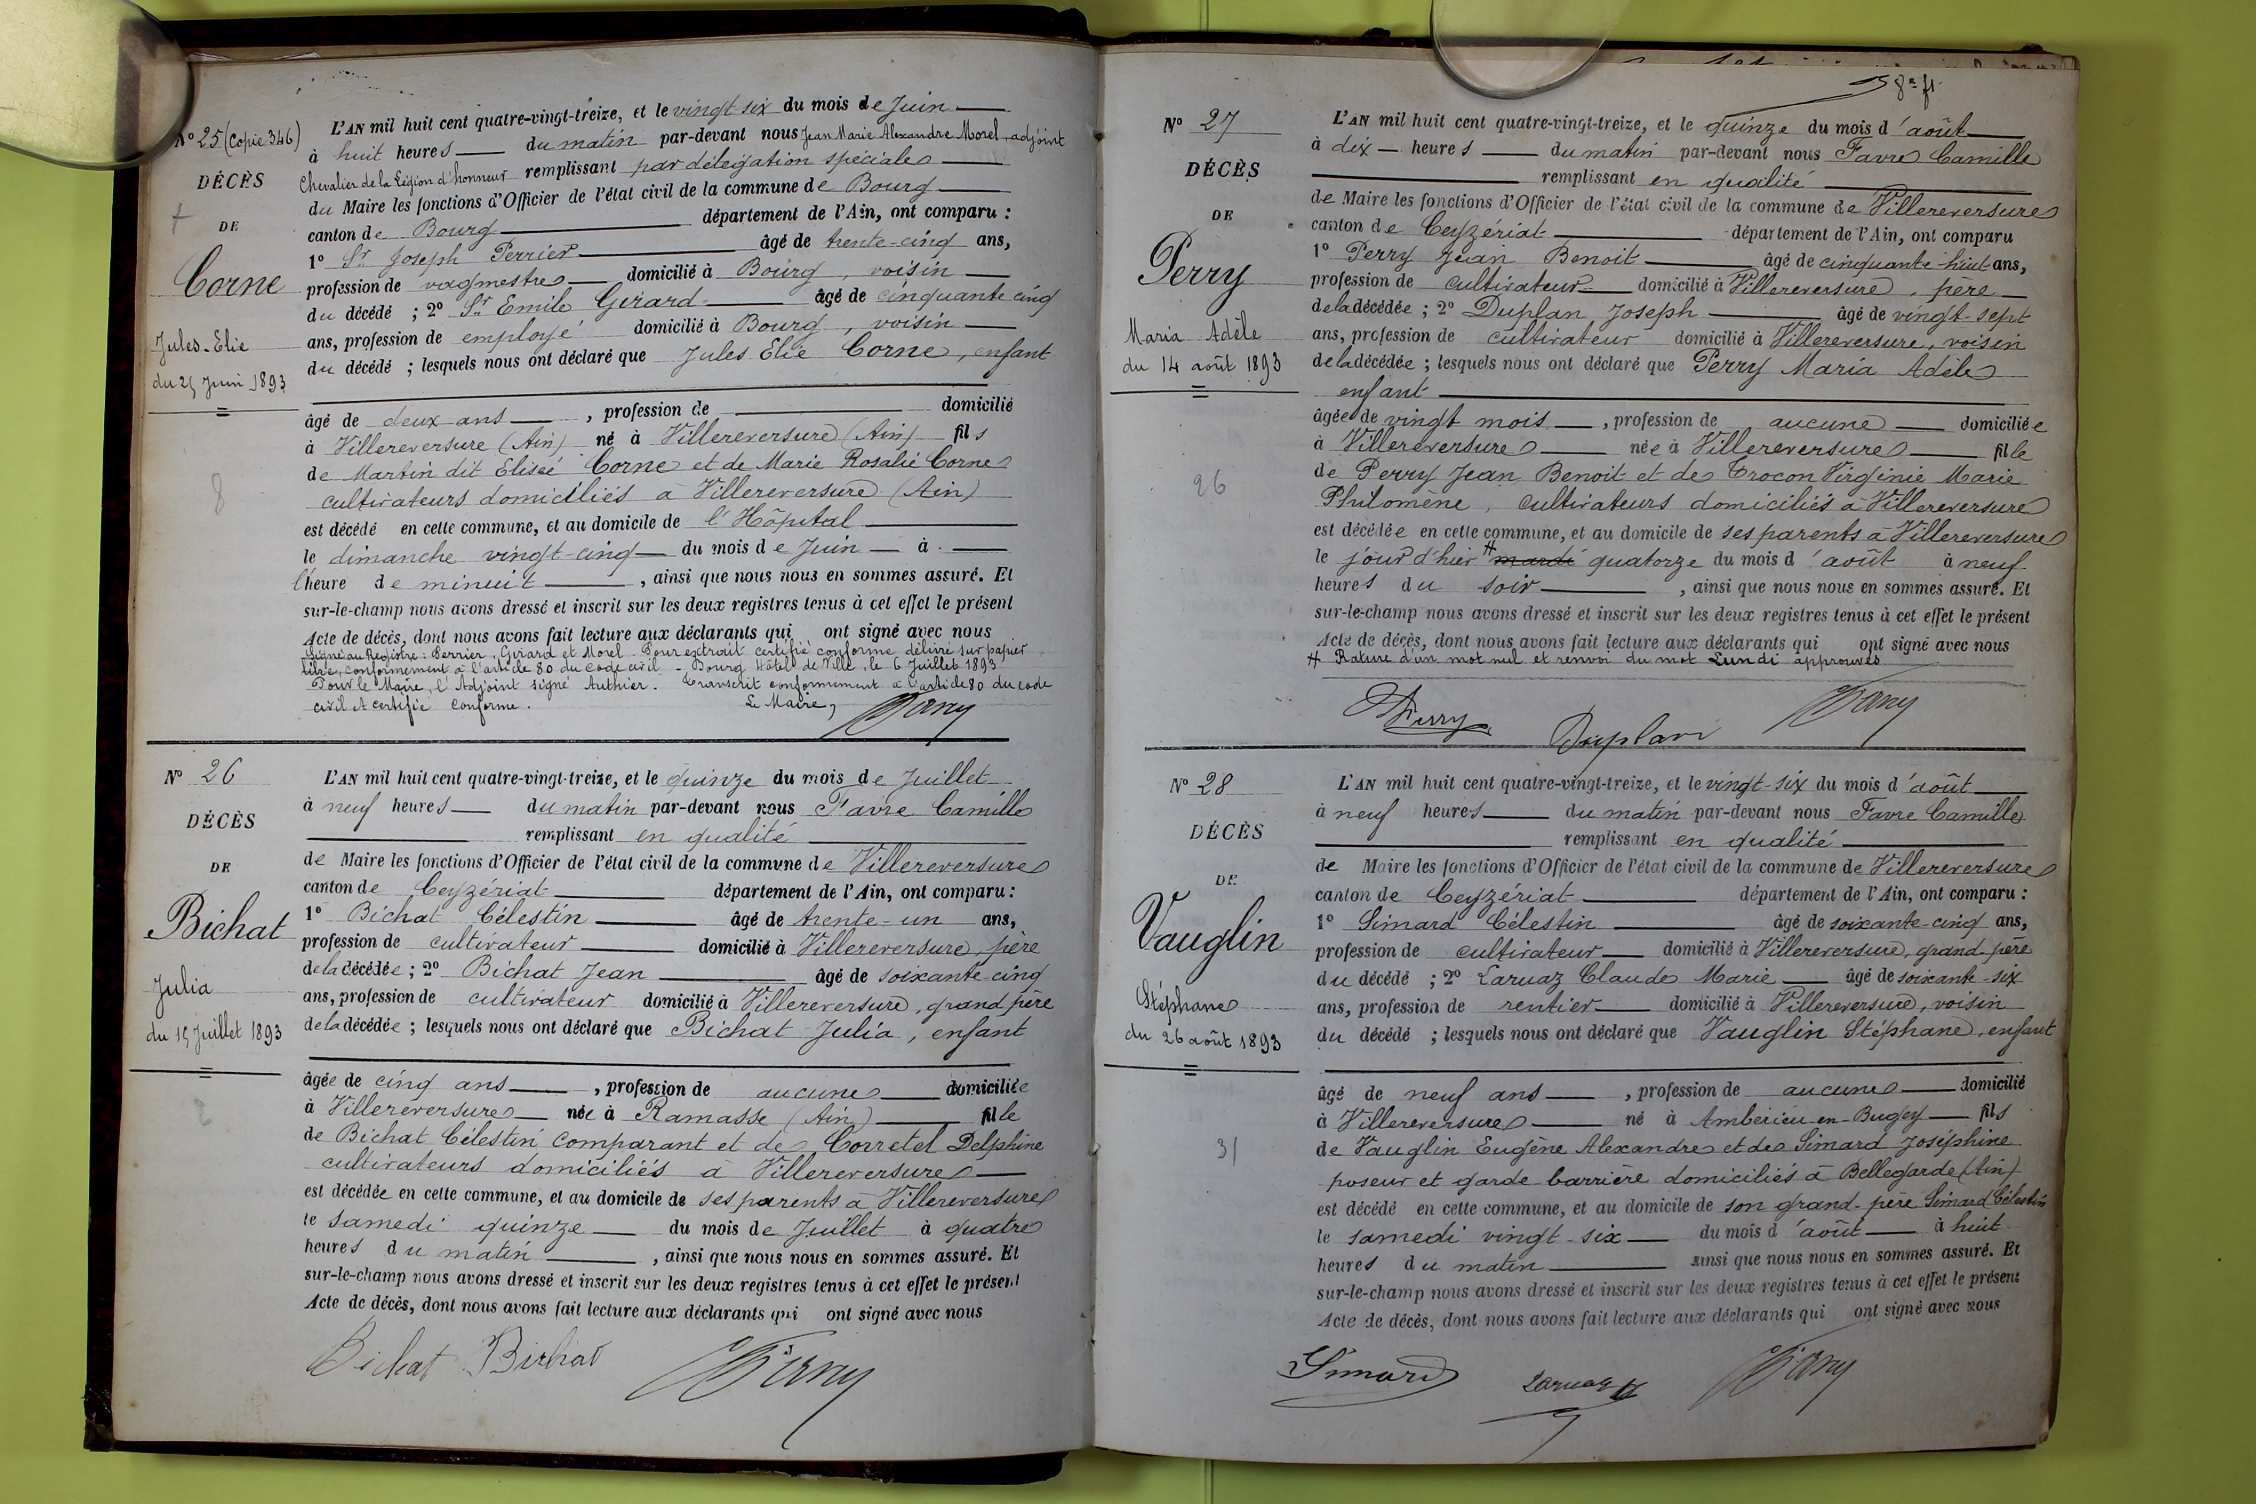 Nº 25 (Copie 346)
DÉCÈS
DE
Corne
Jules-Elie
du 25 Juin 1893
8
L'AN mil huit cent quatre-vingt-treize, et le vingt-six du mois de Juin
à huit heures du matin par-devant nous Jean Marie Alexandre Morel, adjoint
Chevalier de la Légion d'honneur remplissant par délégation spéciale
du Maire les fonctions d'Officier de l'état civil de la commune de Bourg
canton de Bourg département de l'Ain, ont comparu :
1º Sr Joseph Perrier âgé de trente-cinq ans,
profession de vagmestre domicilié à Bourg, voisin
du décédé ; 2º Sr Emile Gérard âgé de cinquante cinq
ans, profession de employé domicilié à Bourg, voisin
du décédé ; lesquels nous ont déclaré que Jules Elie Corne, enfant
âgé de deux ans, profession de domicilié
à Villereversure (Ain) né à Villereversure (Ain) fils
de Martin dit Elisée Corne et de Marie Rosalie Corne
cultivateurs domiciliés à Villereversure (Ain)
est décédé en cette commune, et au domicile de l'Hôpital
le dimanche vingt-cinq du mois de Juin à
l'heure de minuit, ainsi que nous nous en sommes assuré. Et
sur-le-champ nous avons dressé et inscrit sur les deux registres tenus à cet effet le présent
Acte de décès, dont nous avons fait lecture aux déclarants qui ont signé avec nous
Signé au Registre : Perrier, Gérard et Morel. Pour extrait certifié conforme délivré sur papier
libre, conformément à l'article 80 du code civil - Bourg Hôtel de Ville, le 6 Juillet 1893
Pour le Maire, l'Adjoint signé Authier. Transcrit conformément à l'article 80 du code
civil et certifié conforme. Le Maire,
Nº 26
DÉCÈS
DE
Bichat
Julia
du 15 Juillet 1893
L'AN mil huit cent quatre-vingt-treize, et le quinze du mois de Juillet
à neuf heures du matin par-devant nous Favre Camille
remplissant en qualité
de Maire les fonctions d'Officier de l'état civil de la commune de Villereversure
canton de Ceyzériat département de l'Ain, ont comparu :
1º Bichat Célestin âgé de trente-un ans,
profession de cultivateur domicilié à Villereversure, père
de la décédée ; 2º Bichat Jean âgé de soixante-cinq
ans, profession de cultivateur domicilié à Villereversure, grand père
de la décédée ; lesquels nous ont déclaré que Bichat Julia, enfant
âgée de cinq ans, profession de aucune domiciliée
à Villereversure née à Ramasse (Ain) fille
de Bichat Célestin comparant et de Corretel Delphine
cultivateurs domiciliés à Villereversure
est décédée en cette commune, et au domicile de ses parents à Villereversure
le samedi quinze du mois de Juillet à quatre
heures du matin, ainsi que nous nous en sommes assuré. Et
sur-le-champ nous avons dressé et inscrit sur les deux registres tenus à cet effet le présent
Acte de décès, dont nous avons fait lecture aux déclarants qui ont signé avec nous
Bichat Bichat
8e ft.
Nº 27
DÉCÈS
DE
Perry
Maria Adèle
du 14 août 1893
26
L'AN mil huit cent quatre-vingt-treize, et le quinze du mois d'août
à dix heures du matin par-devant nous Favre Camille
remplissant en qualité
de Maire les fonctions d'Officier de l'état civil de la commune de Villereversure
canton de Ceyzériat département de l'Ain, ont comparu
1º Perry Jean Benoit âgé de cinquante-huit ans,
profession de cultivateur domicilié à Villereversure, père
de la décédée ; 2º Duplan Joseph âgé de vingt-sept
ans, profession de cultivateur domicilié à Villereversure, voisin
de la décédée ; lesquels nous ont déclaré que Perry Maria Adèle
enfant
âgée de vingt mois, profession de aucune domiciliée
à Villereversure née à Villereversure fille
de Perry Jean Benoit et de Trocon Virginie Marie
Philomène, cultivateurs domiciliés à Villereversure
est décédée en cette commune, et au domicile de ses parents à Villereversure
le jour d'hier # mardi quatorze du mois d'août à neuf
heures du soir, ainsi que nous nous en sommes assuré. Et
sur-le-champ nous avons dressé et inscrit sur les deux registres tenus à cet effet le présent
Acte de décès, dont nous avons fait lecture aux déclarants qui ont signé avec nous
# Rature d'un mot nul et renvoi du mot Lundi approuvés
Perry Duplan
Nº 28
DÉCÈS
DE
Vauglin
Stéphane
du 26 août 1893
31
L'AN mil huit cent quatre-vingt-treize, et le vingt-six du mois d'août
à neuf heures du matin par-devant nous Favre Camille
remplissant en qualité
de Maire les fonctions d'Officier de l'état civil de la commune de Villereversure
canton de Ceyzériat département de l'Ain, ont comparu :
1º Simard Célestin âgé de soixante-cinq ans,
profession de cultivateur domicilié à Villereversure, grand-père
du décédé ; 2º Laruaz Claude Marie âgé de soixante-six
ans, profession de rentier domicilié à Villereversure, voisin
du décédé ; lesquels nous ont déclaré que Vauglin Stéphane, enfant
âgé de neuf ans, profession de aucune domicilié
à Villereversure né à Ambérieu-en-Bugey fils
de Vauglin Eugène Alexandre et de Simard Joséphine
poseur et garde barrière domiciliés à Bellegarde (Ain)
est décédé en cette commune, et au domicile de son grand-père Simard Célestin
le samedi vingt-six du mois d'août à huit
heures du matin ainsi que nous nous en sommes assuré. Et
sur-le-champ nous avons dressé et inscrit sur les deux registres tenus à cet effet le présent
Acte de décès, dont nous avons fait lecture aux déclarants qui ont signé avec nous
Simard Laruaz